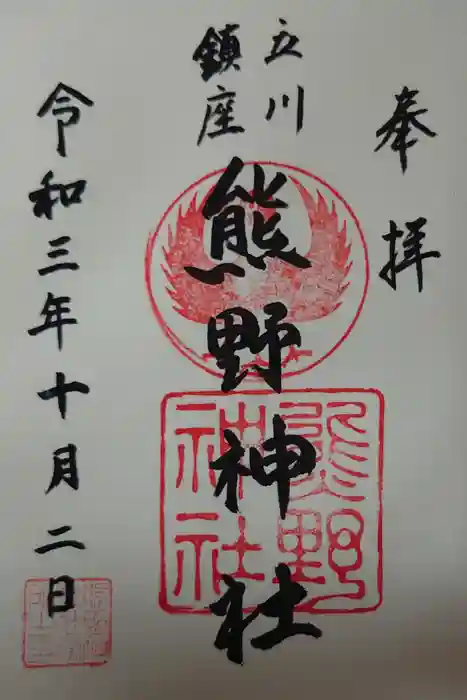 奉拝
立川
鎮座
熊野神社
熊野
神社
令和三年十月二日